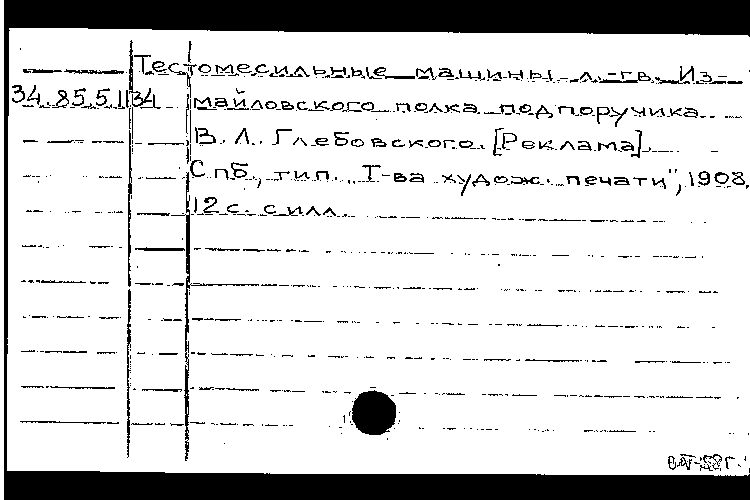 Тестомесильные машины л.-гв. Из-
34.85.5.1 34 майловского полка подпоручика
В. Л. Глебовского. [Реклама].
Спб., тип. "Т-ва худож. печати", 1908.
12 с. с илл.